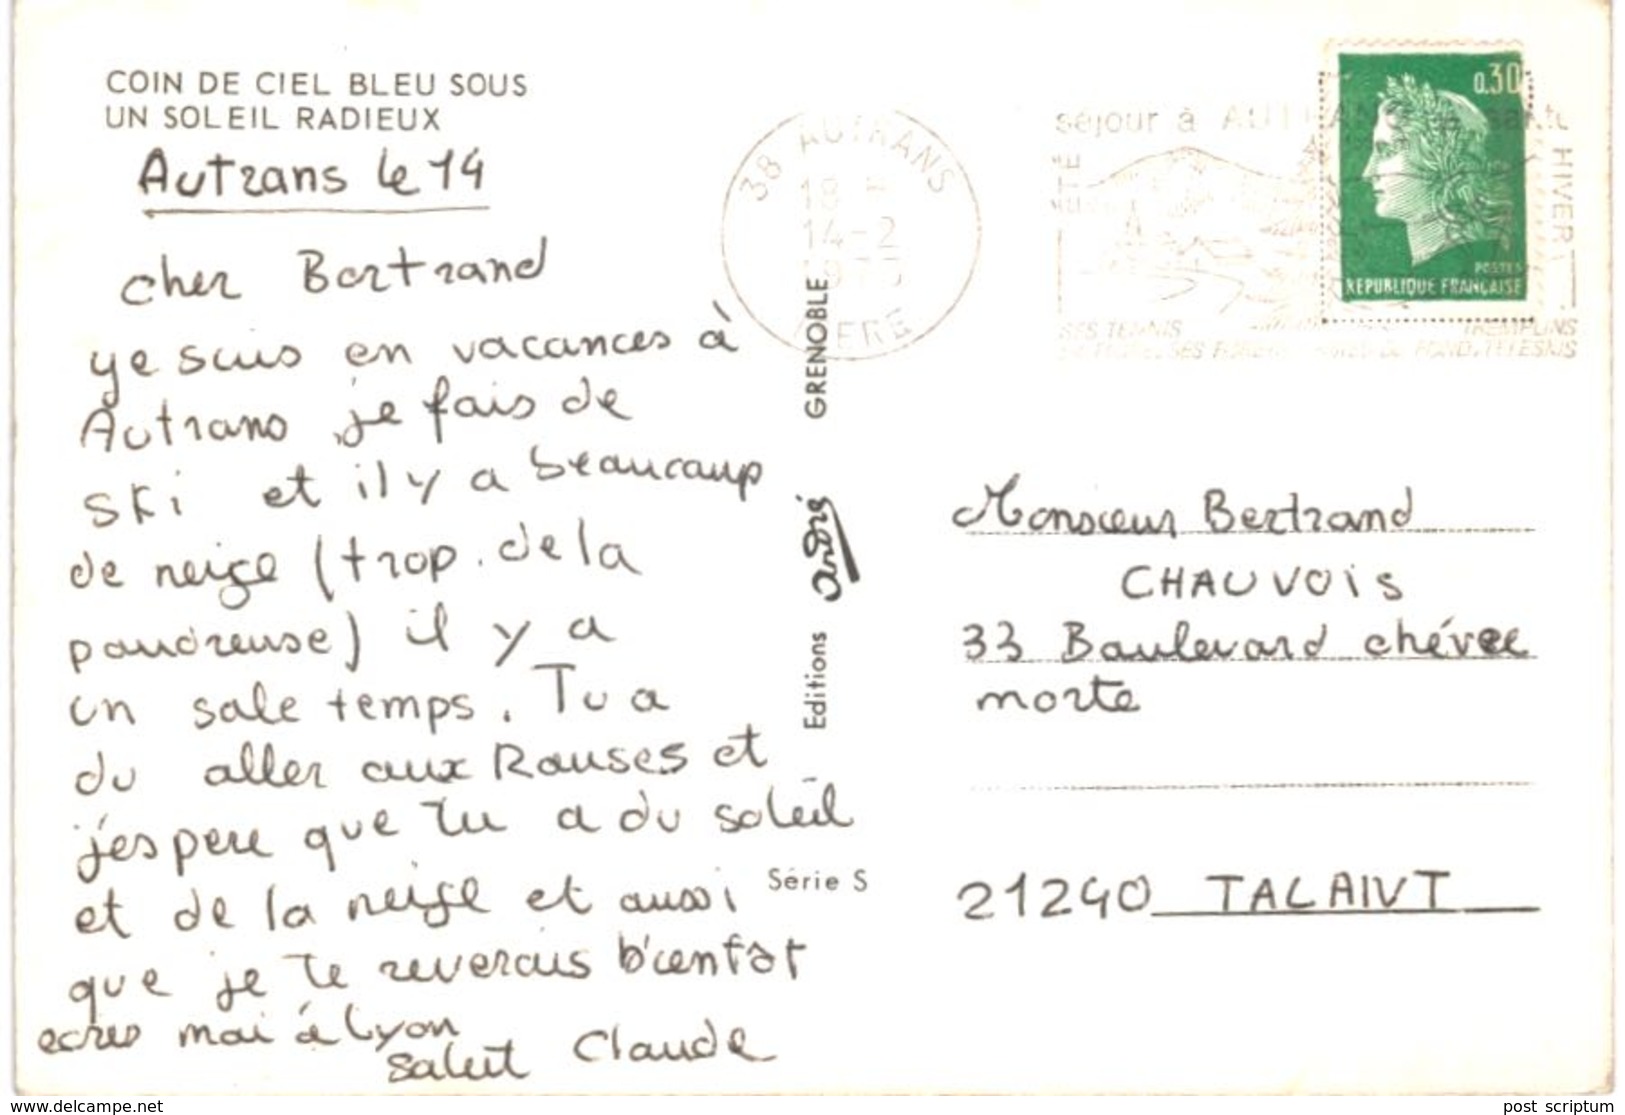 COIN DE CIEL BLEU SOUS
UN SOLEIL RADIEUX
Autrans le 14
cher Bertrand
je suis en vacances à
Autrans, je fais de
ski et il y a beaucoup
de neige (trop. de la
poudreuse) il y a
un sale temps. Tu a
du aller aux Rouses et
j'espere que tu a du soleil
et de la neige et aussi
que je te reverais bientôt
ecris moi à Lyon
salut Claude
Editions André GRENOBLE
Série S
38 AUTRANS
18 H
14-2
ISERE
séjour à AUTRANS
HIVER
SES TENNIS
TREMPLINS
FOND, TELESKIS
0,30
POSTES
REPUBLIQUE FRANÇAISE
Monsieur Bertrand
CHAUVOIS
33 Boulevard chévre
morte
21240 TALANT
www.delcampe.net
post_scriptum